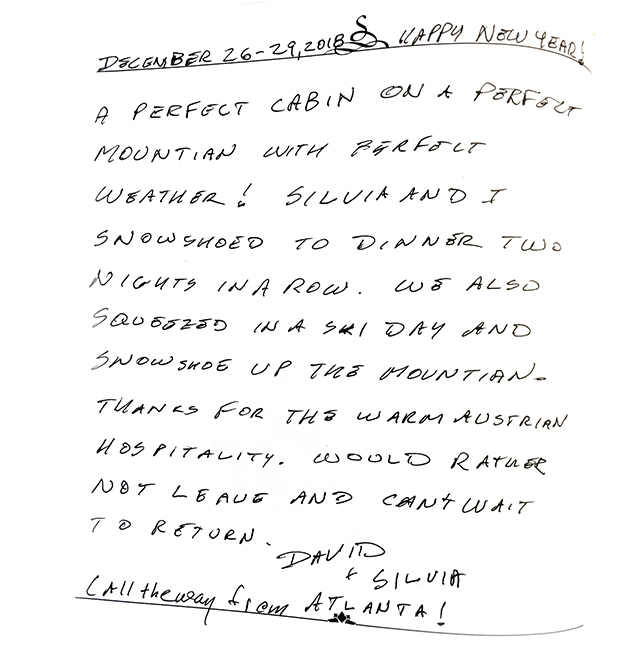 DECEMBER 26-29, 2018 HAPPY NEW YEAR!
A PERFECT CABIN ON A PERFECT
MOUNTIAN WITH PERFECT
WEATHER! SILVIA AND I
SNOWSHOED TO DINNER TWO
NIGHTS IN A ROW. WE ALSO
SQUEEZED IN A SKI DAY AND
SNOWSHOE UP THE MOUNTIAN.
THANKS FOR THE WARM AUSTRIAN
HOSPITALITY. WOULD RATHER
NOT LEAVE AND CAN'T WAIT
TO RETURN.
DAVID
+ SILVIA
(All the way from ATLANTA!